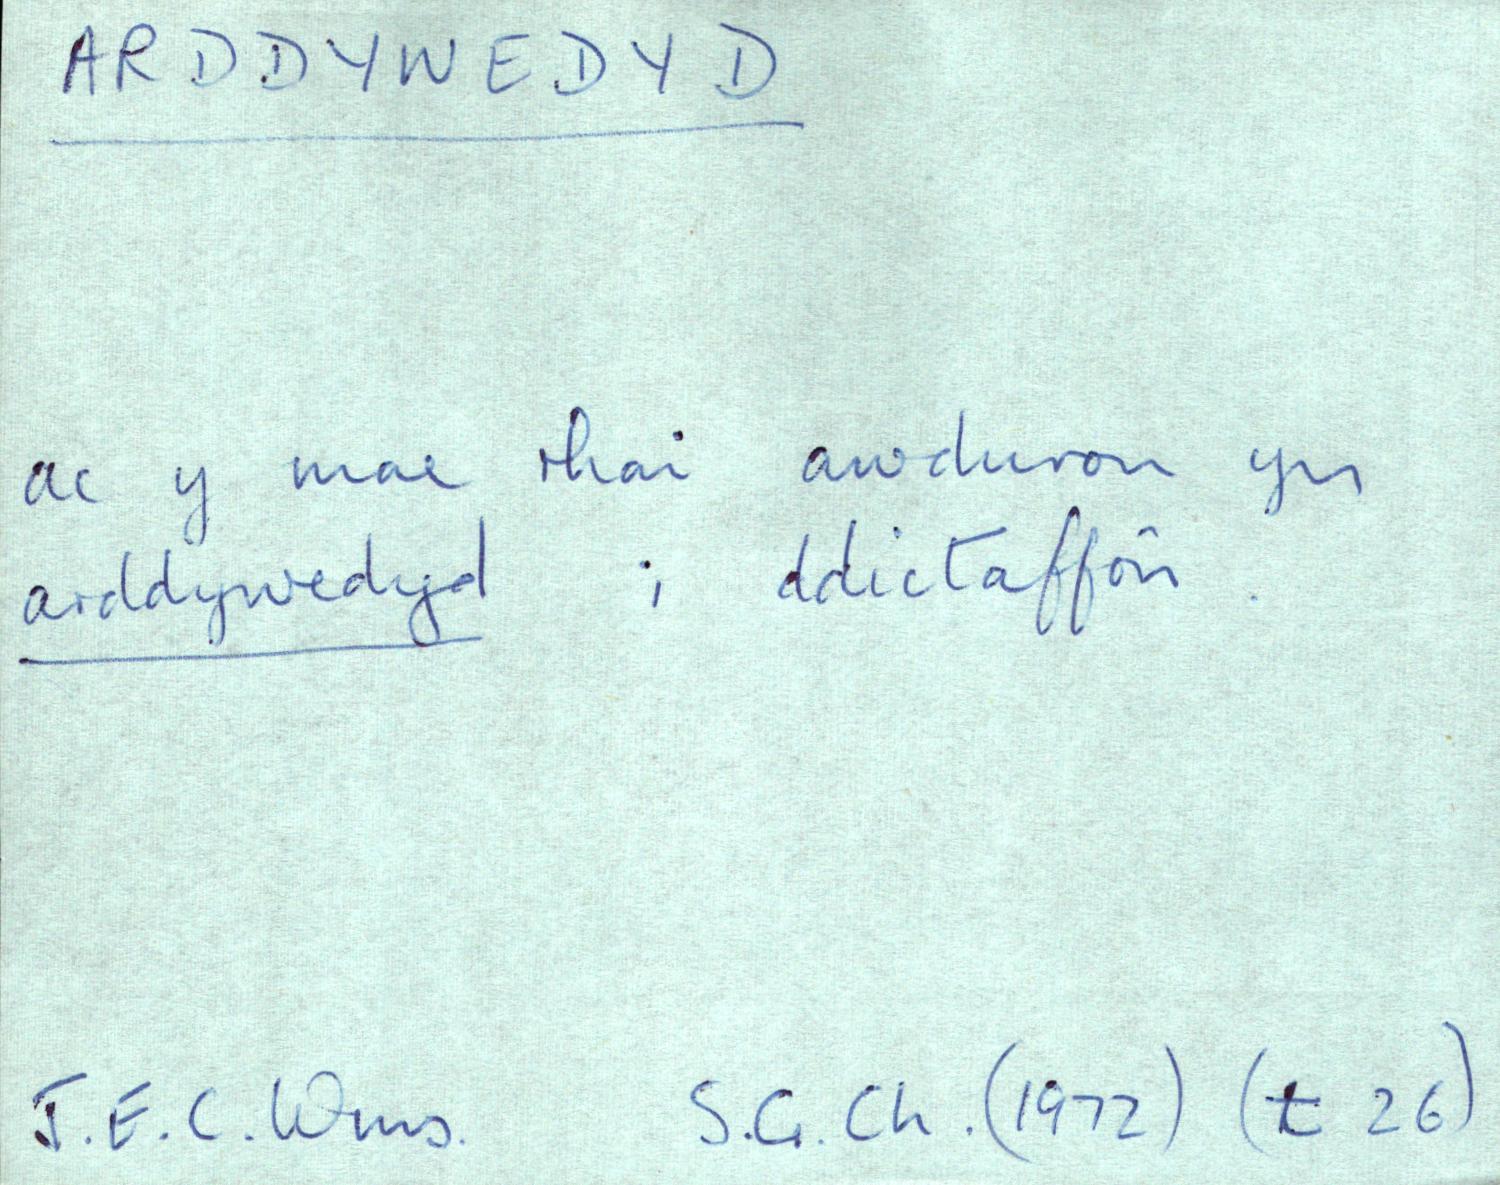 ARDDYWEDYD
ac y mae rhai awduron yn
arddywedyd i ddictaffôn.
J.E.C. Wms. S.G.Ch. (1972) (t 26)